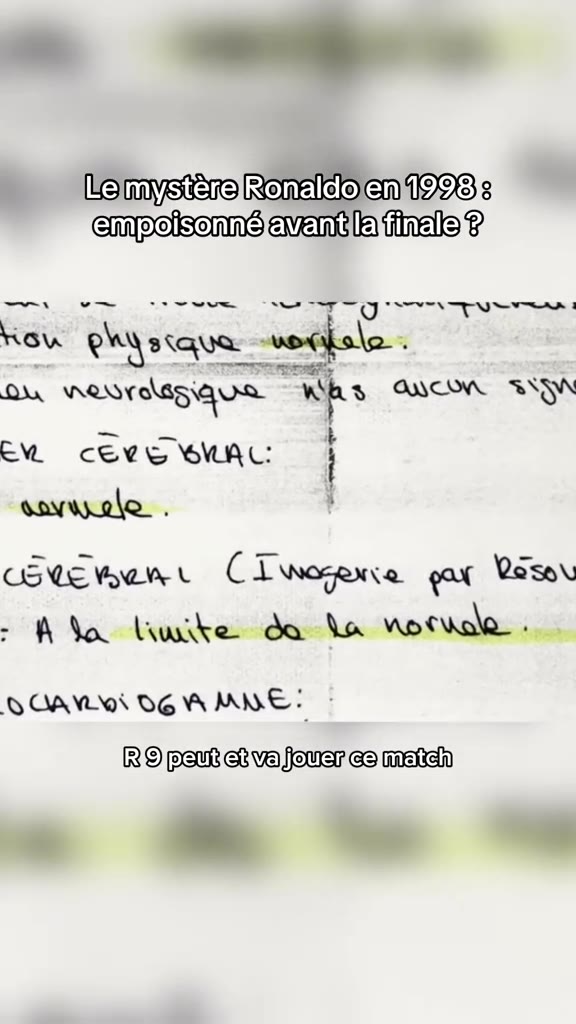 Le mystère Ronaldo en 1998 :
empoisonné avant la finale ?
tion physique normale.
neurologique n'as aucun sign
ER CÉRÉBRAL:
normale.
CÉRÉBRAL (Imagerie par Réson
: A la limite de la normale.
OCARDIOGAMME:
R 9 peut et va jouer ce match